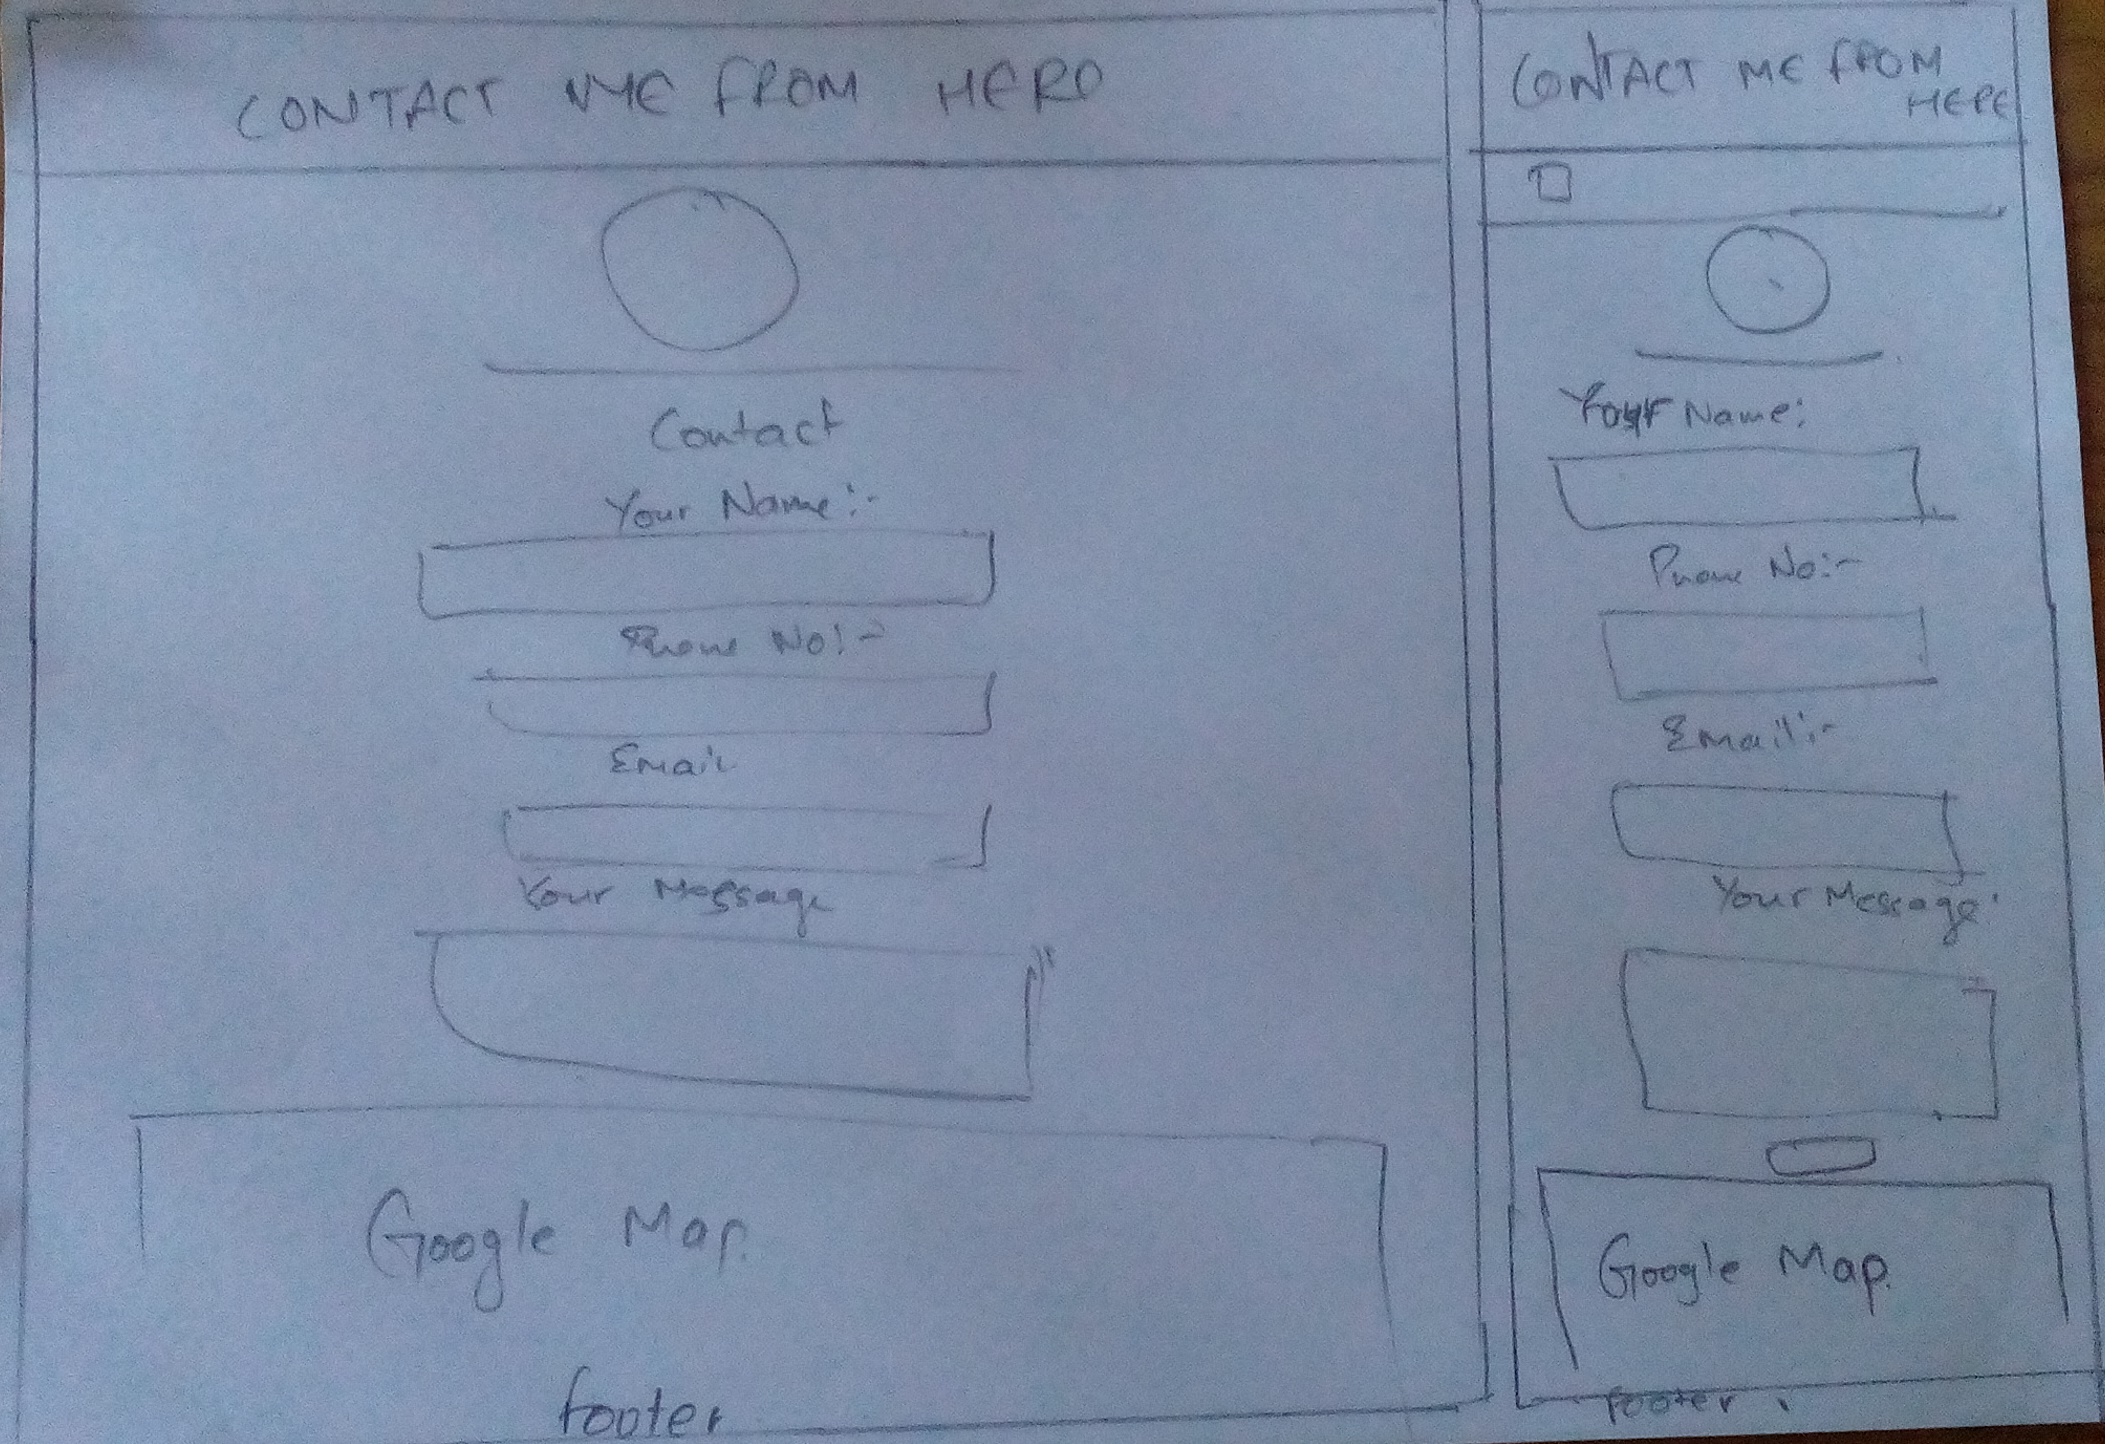 CONTACT ME FROM HERO
Contact
Your Name:-
Phone No:-
Email
Your Message
Google Map.
footer
CONTACT ME FROM
HERE
Your Name:
Phone No:-
Email:-
Your Message:
Google Map.
footer.